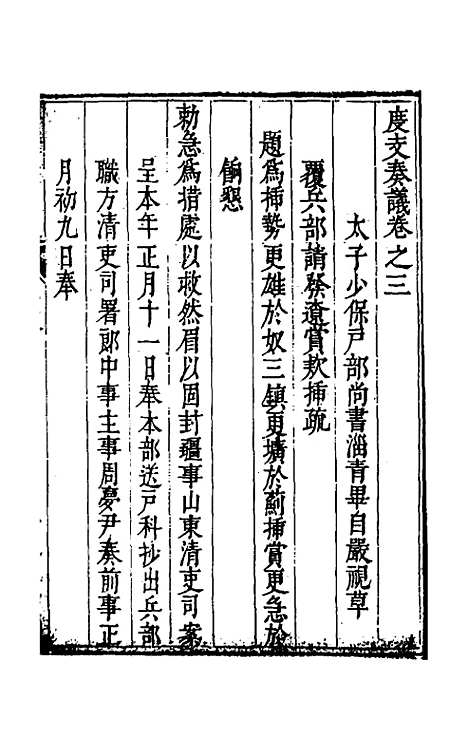 度支奏議卷之三
太子少保戶部尚書淄青畢自嚴視草
覆兵部請發遼賞款插疏
題為插勢更雄於奴三鎮更壙於薊插賞更急於
餉懇
勅急為措處以救然眉以固封疆事山東清吏司案
呈本年正月十一日奉本部送戶科抄出兵部
職方清吏司署郎中事主事周夢尹奏前事正
月初九日奉